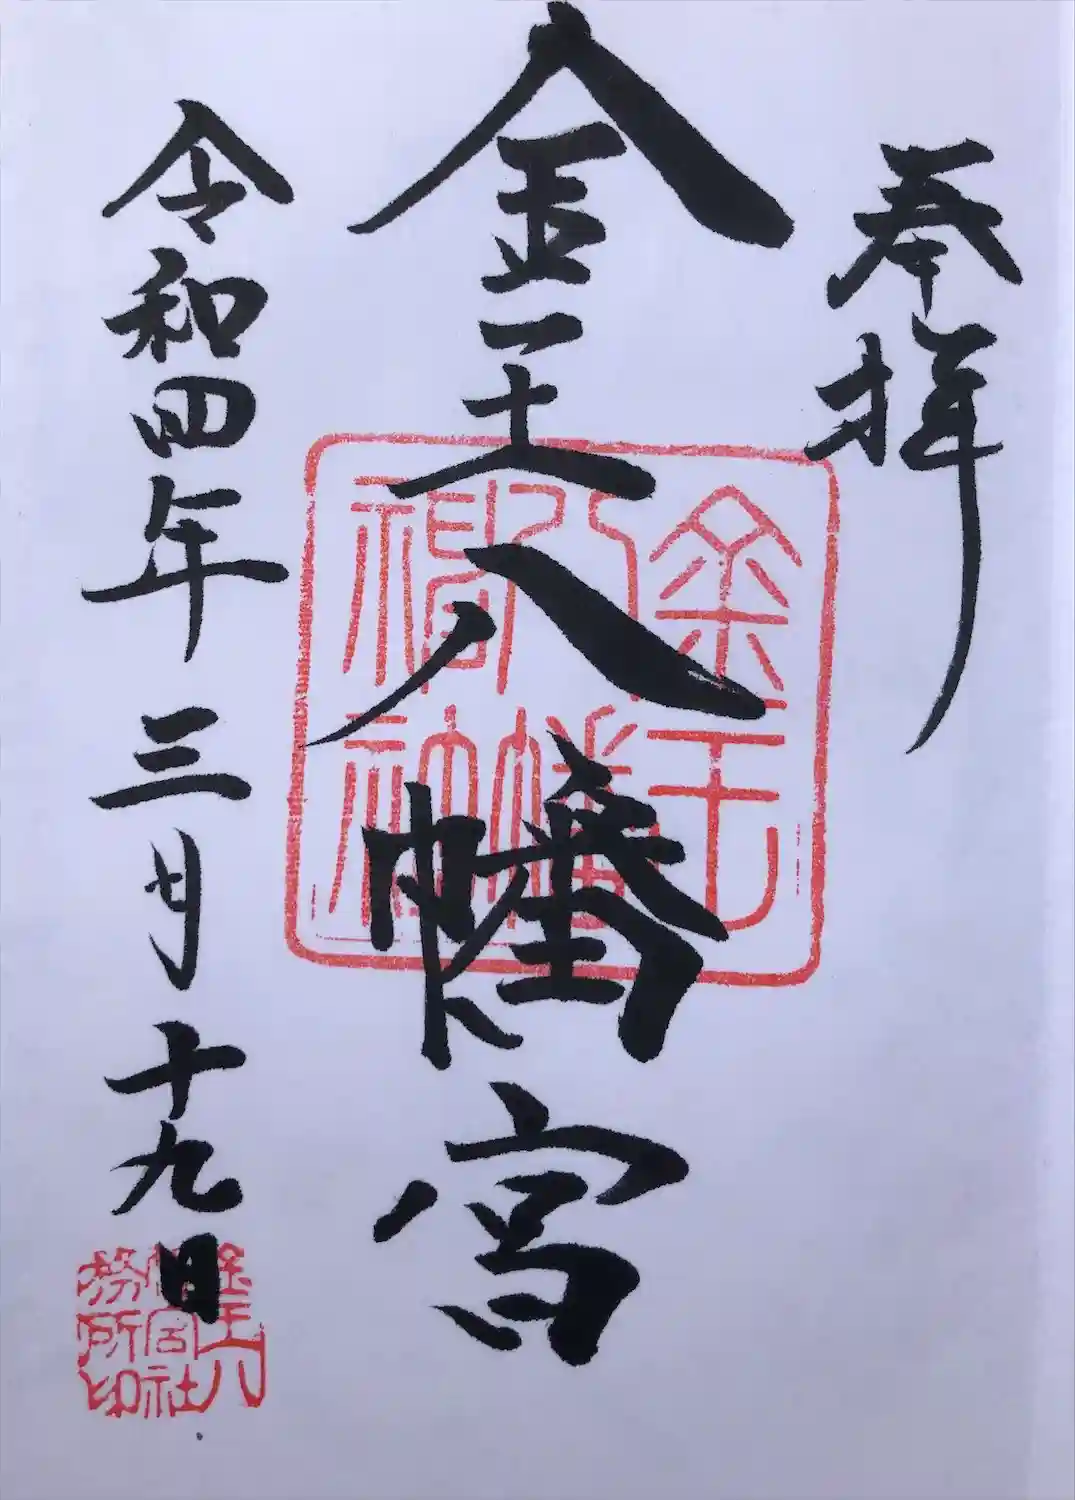 奉拝
金王八幡宮
令和四年三月十九日
金王八
幡宮社
務所印